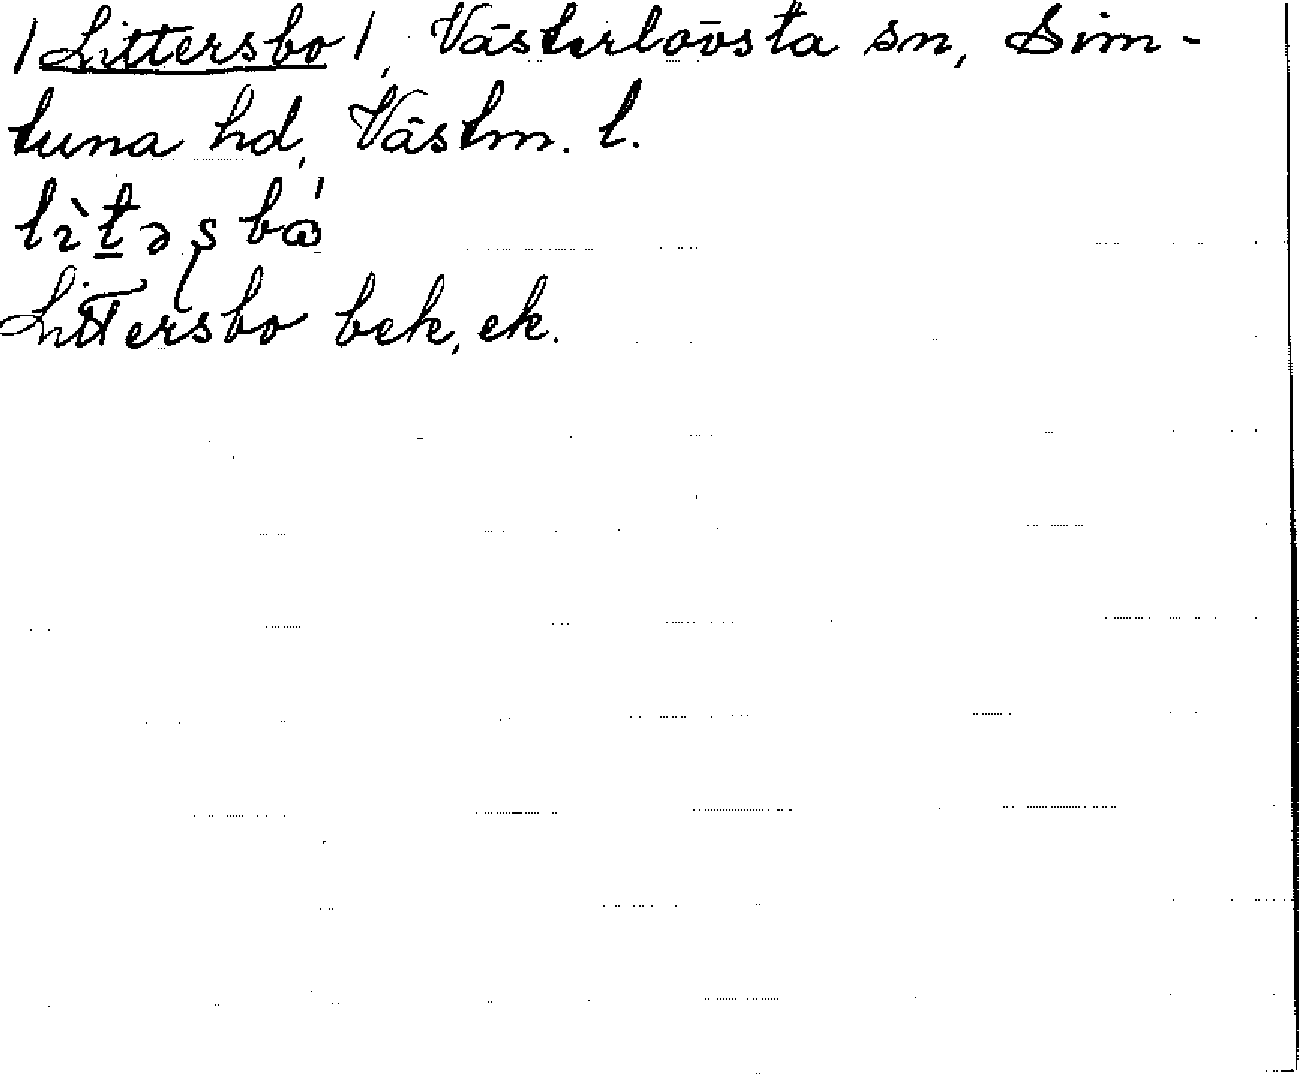 /Littersbo/, Västerlövsta sn, Sim-
tuna hd, Västm. l.
Littersbo bek, ek.